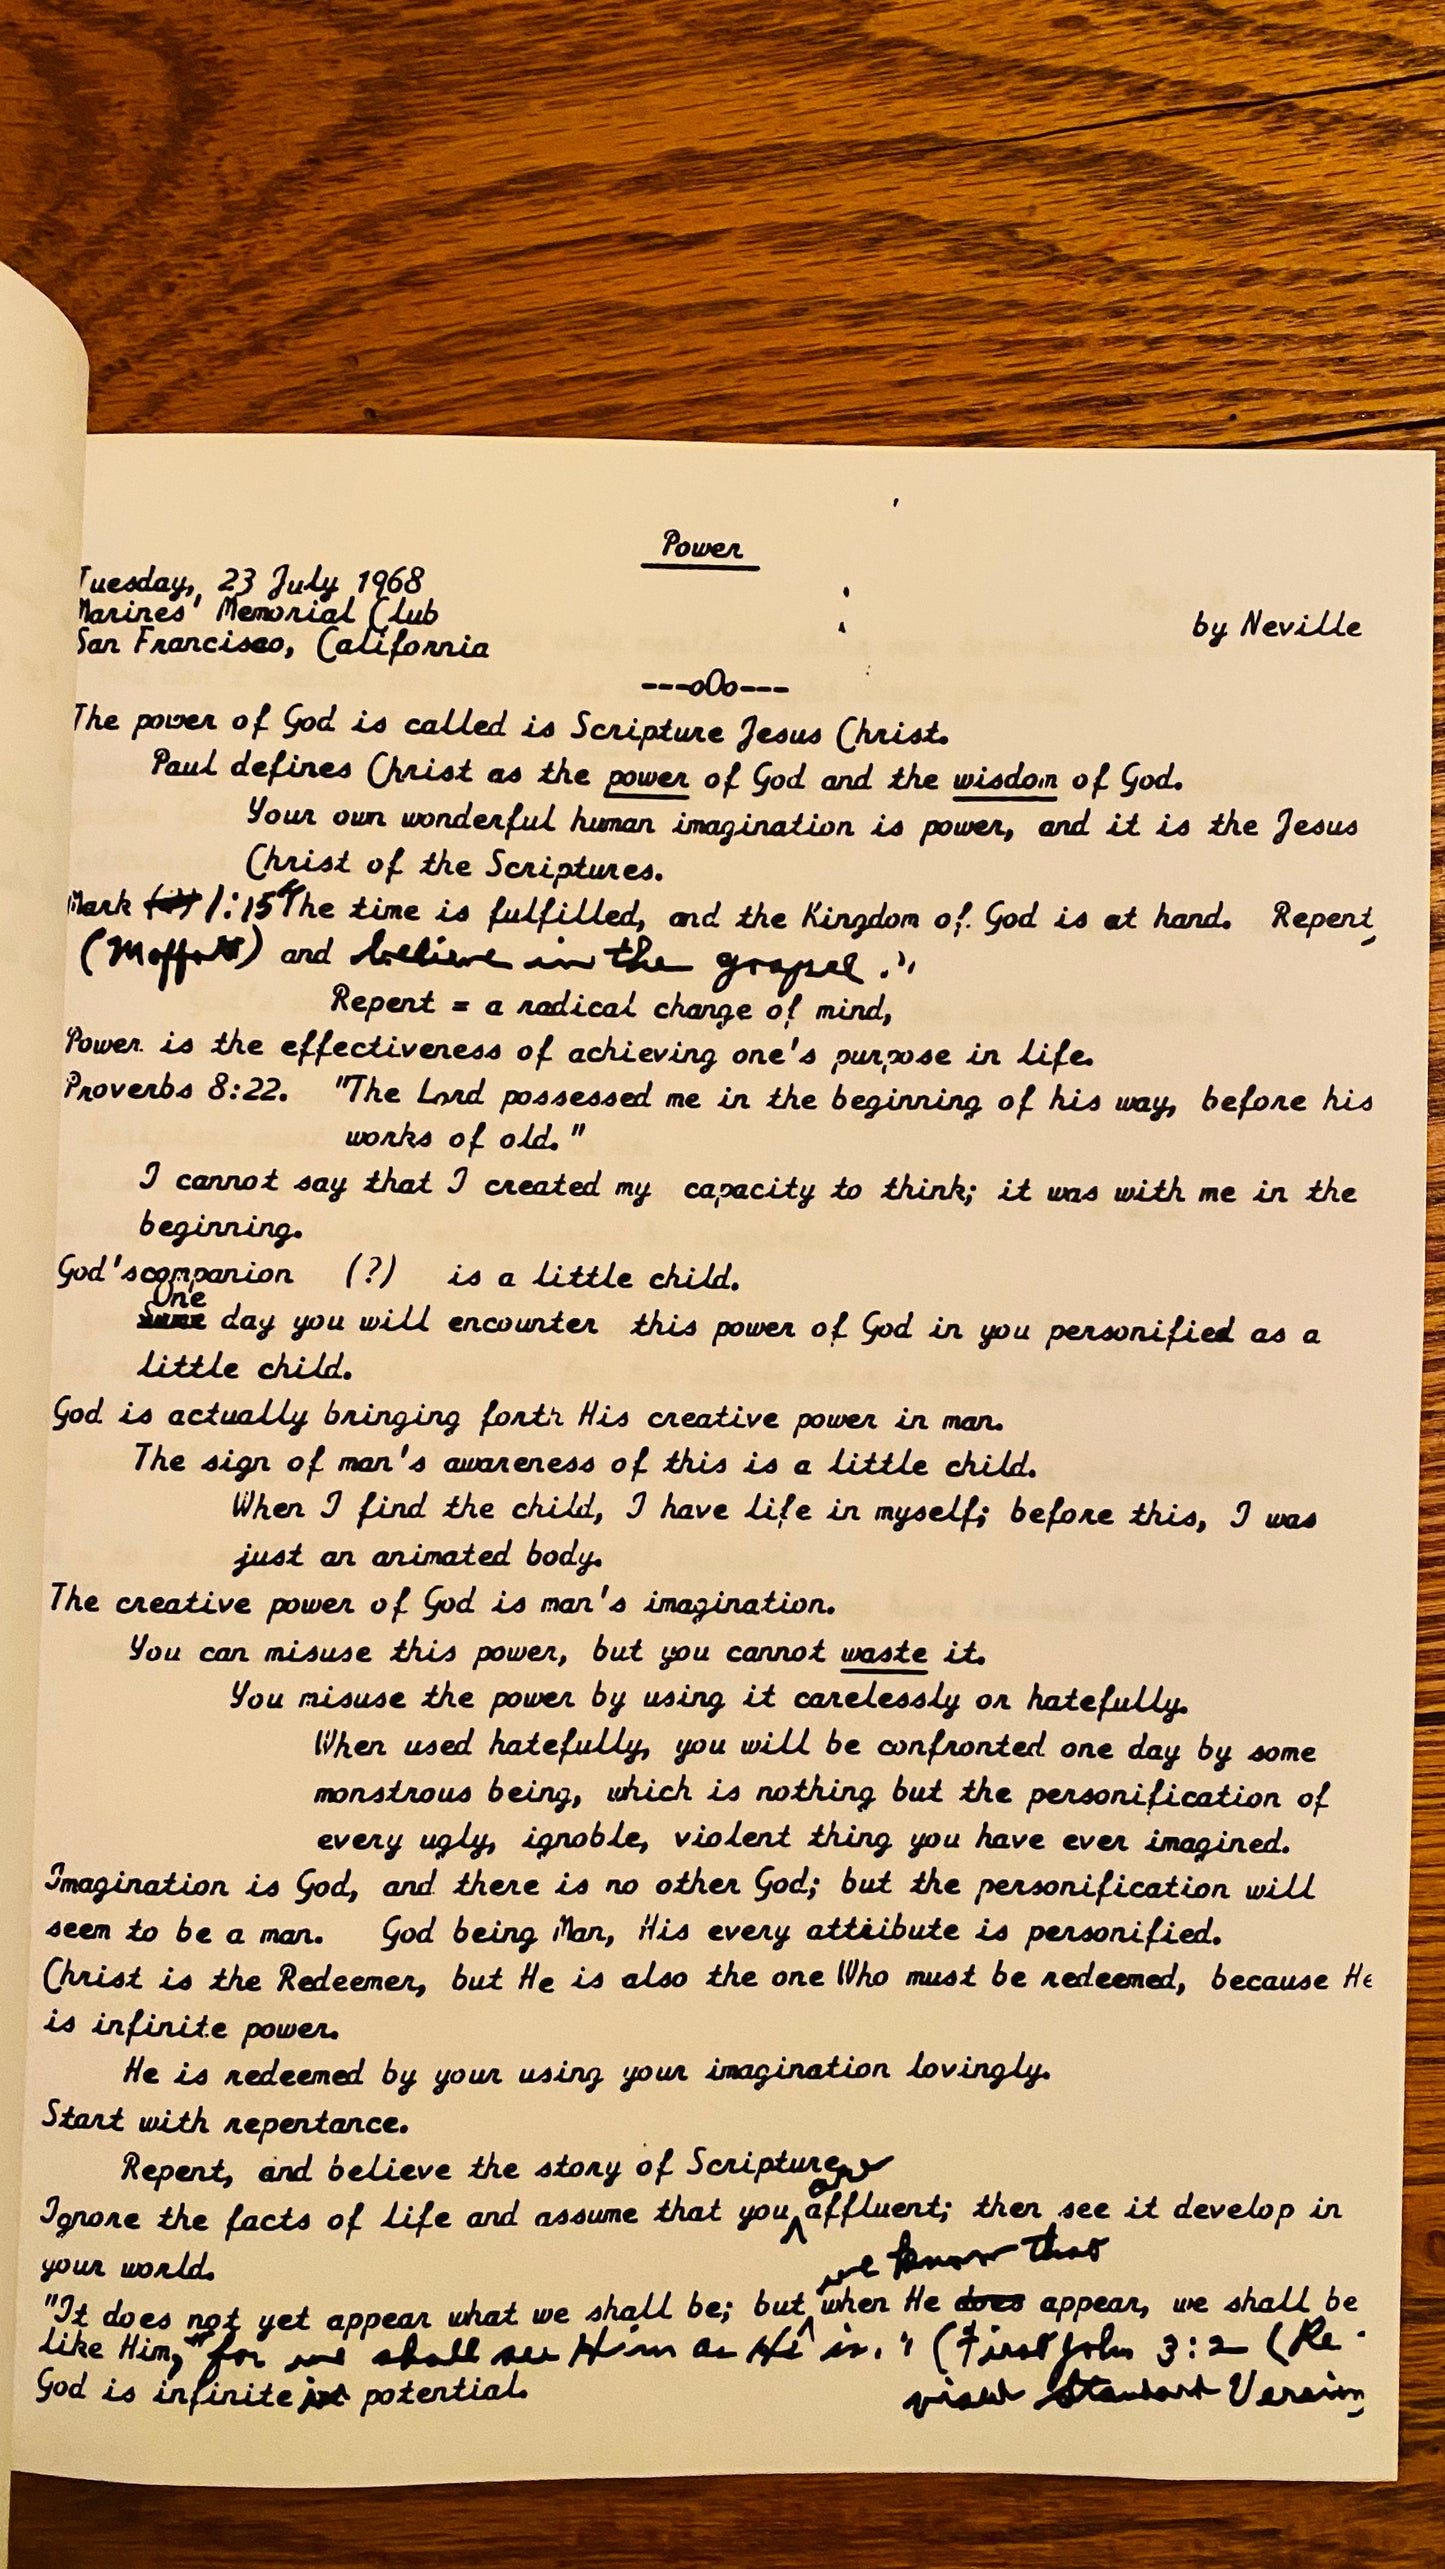 Power
Tuesday, 23 July 1968
Marines' Memorial Club
by Neville
San Francisco, California
---oOo---
The power of God is called is Scripture Jesus Christ.
Paul defines Christ as the power of God and the wisdom of God.
Your own wonderful human imagination is power, and it is the Jesus
Christ of the Scriptures.
Mark 1:15 "The time is fulfilled, and the Kingdom of God is at hand. Repent,
(Moffatt) and believe in the gospel."
Repent = a radical change of mind,
Power is the effectiveness of achieving one's purpose in life.
Proverbs 8:22. "The Lord possessed me in the beginning of his way, before his
works of old."
I cannot say that I created my capacity to think; it was with me in the
beginning.
God's companion (?) is a little child.
One day you will encounter this power of God in you personified as a
little child.
God is actually bringing forth His creative power in man.
The sign of man's awareness of this is a little child.
When I find the child, I have life in myself; before this, I was
just an animated body.
The creative power of God is man's imagination.
You can misuse this power, but you cannot waste it.
You misuse the power by using it carelessly or hatefully.
When used hatefully, you will be confronted one day by some
monstrous being, which is nothing but the personification of
every ugly, ignoble, violent thing you have ever imagined.
Imagination is God, and there is no other God; but the personification will
seem to be a man. God being Man, His every attribute is personified.
Christ is the Redeemer, but He is also the one Who must be redeemed, because He
is infinite power.
He is redeemed by your using your imagination lovingly.
Start with repentance.
Repent, and believe the story of Scripture
Ignore the facts of life and assume that you are affluent; then see it develop in
your world.
"It does not yet appear what we shall be; but we know that when He does appear, we shall be
like Him, for we shall see Him as He is." (First John 3:2 (Re-
God is infinite potential. vised Standard Version